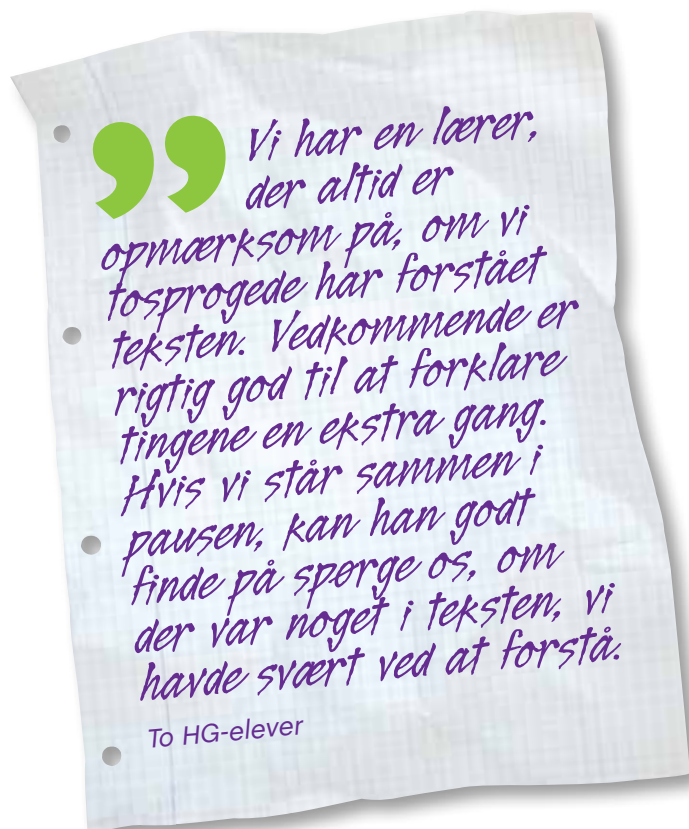 ”
Vi har en lærer,
der altid er
opmærksom på, om vi
tosprogede har forstået
teksten. Vedkommende er
rigtig god til at forklare
tingene en ekstra gang.
Hvis vi står sammen i
pausen, kan han godt
finde på spørge os, om
der var noget i teksten, vi
havde svært ved at forstå.
To HG-elever